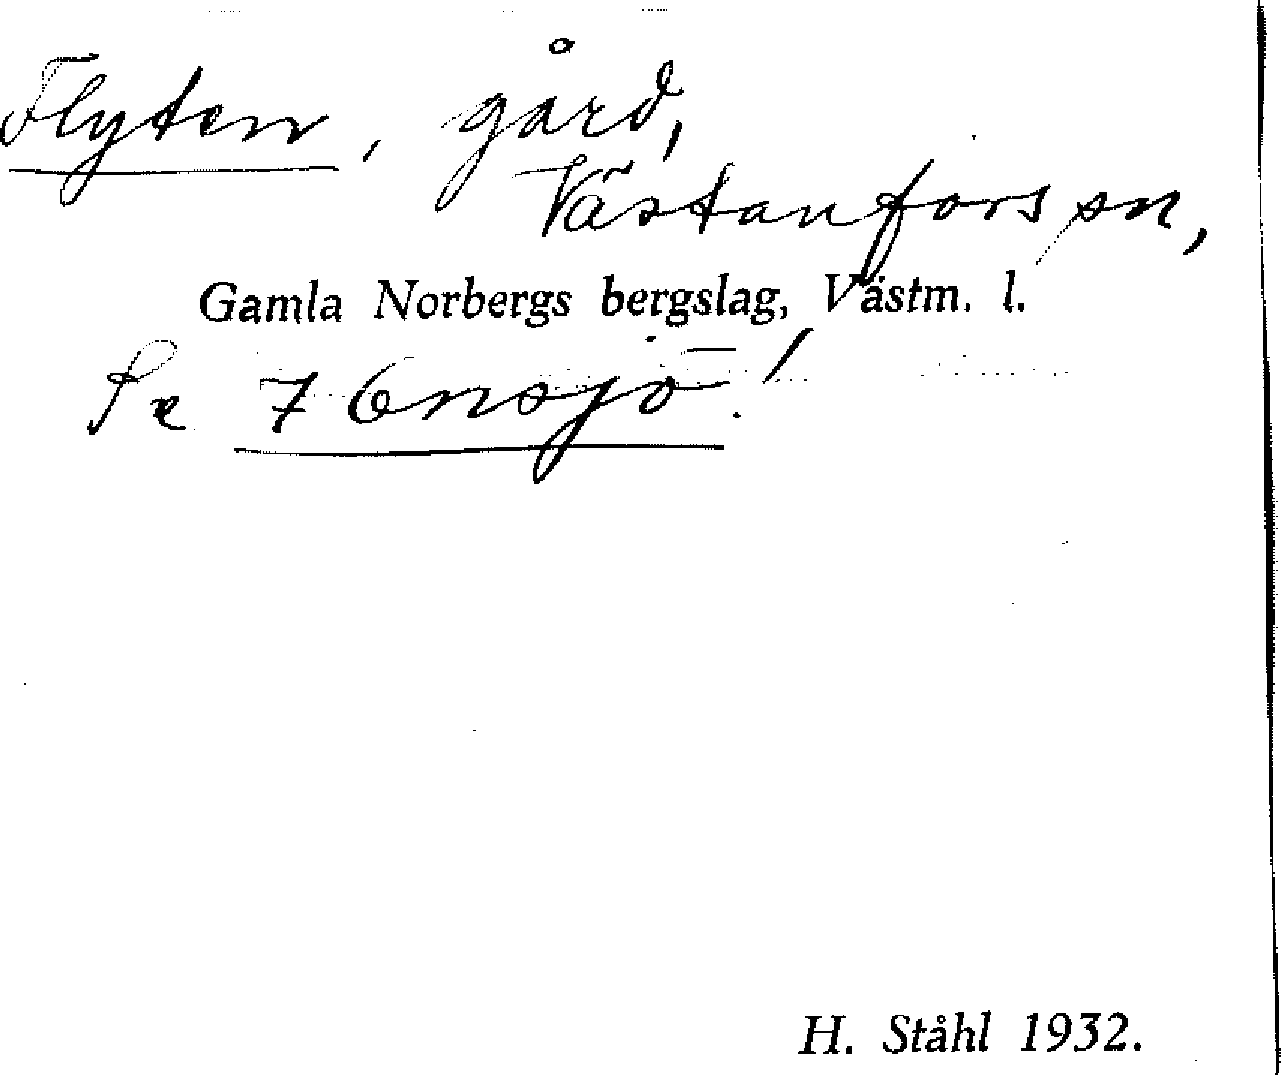 Flyten, gård,
Västanfors sn,
Gamla Norbergs bergslag, Västm. l.
Se 7 Ensjö!
H. Ståhl 1932.